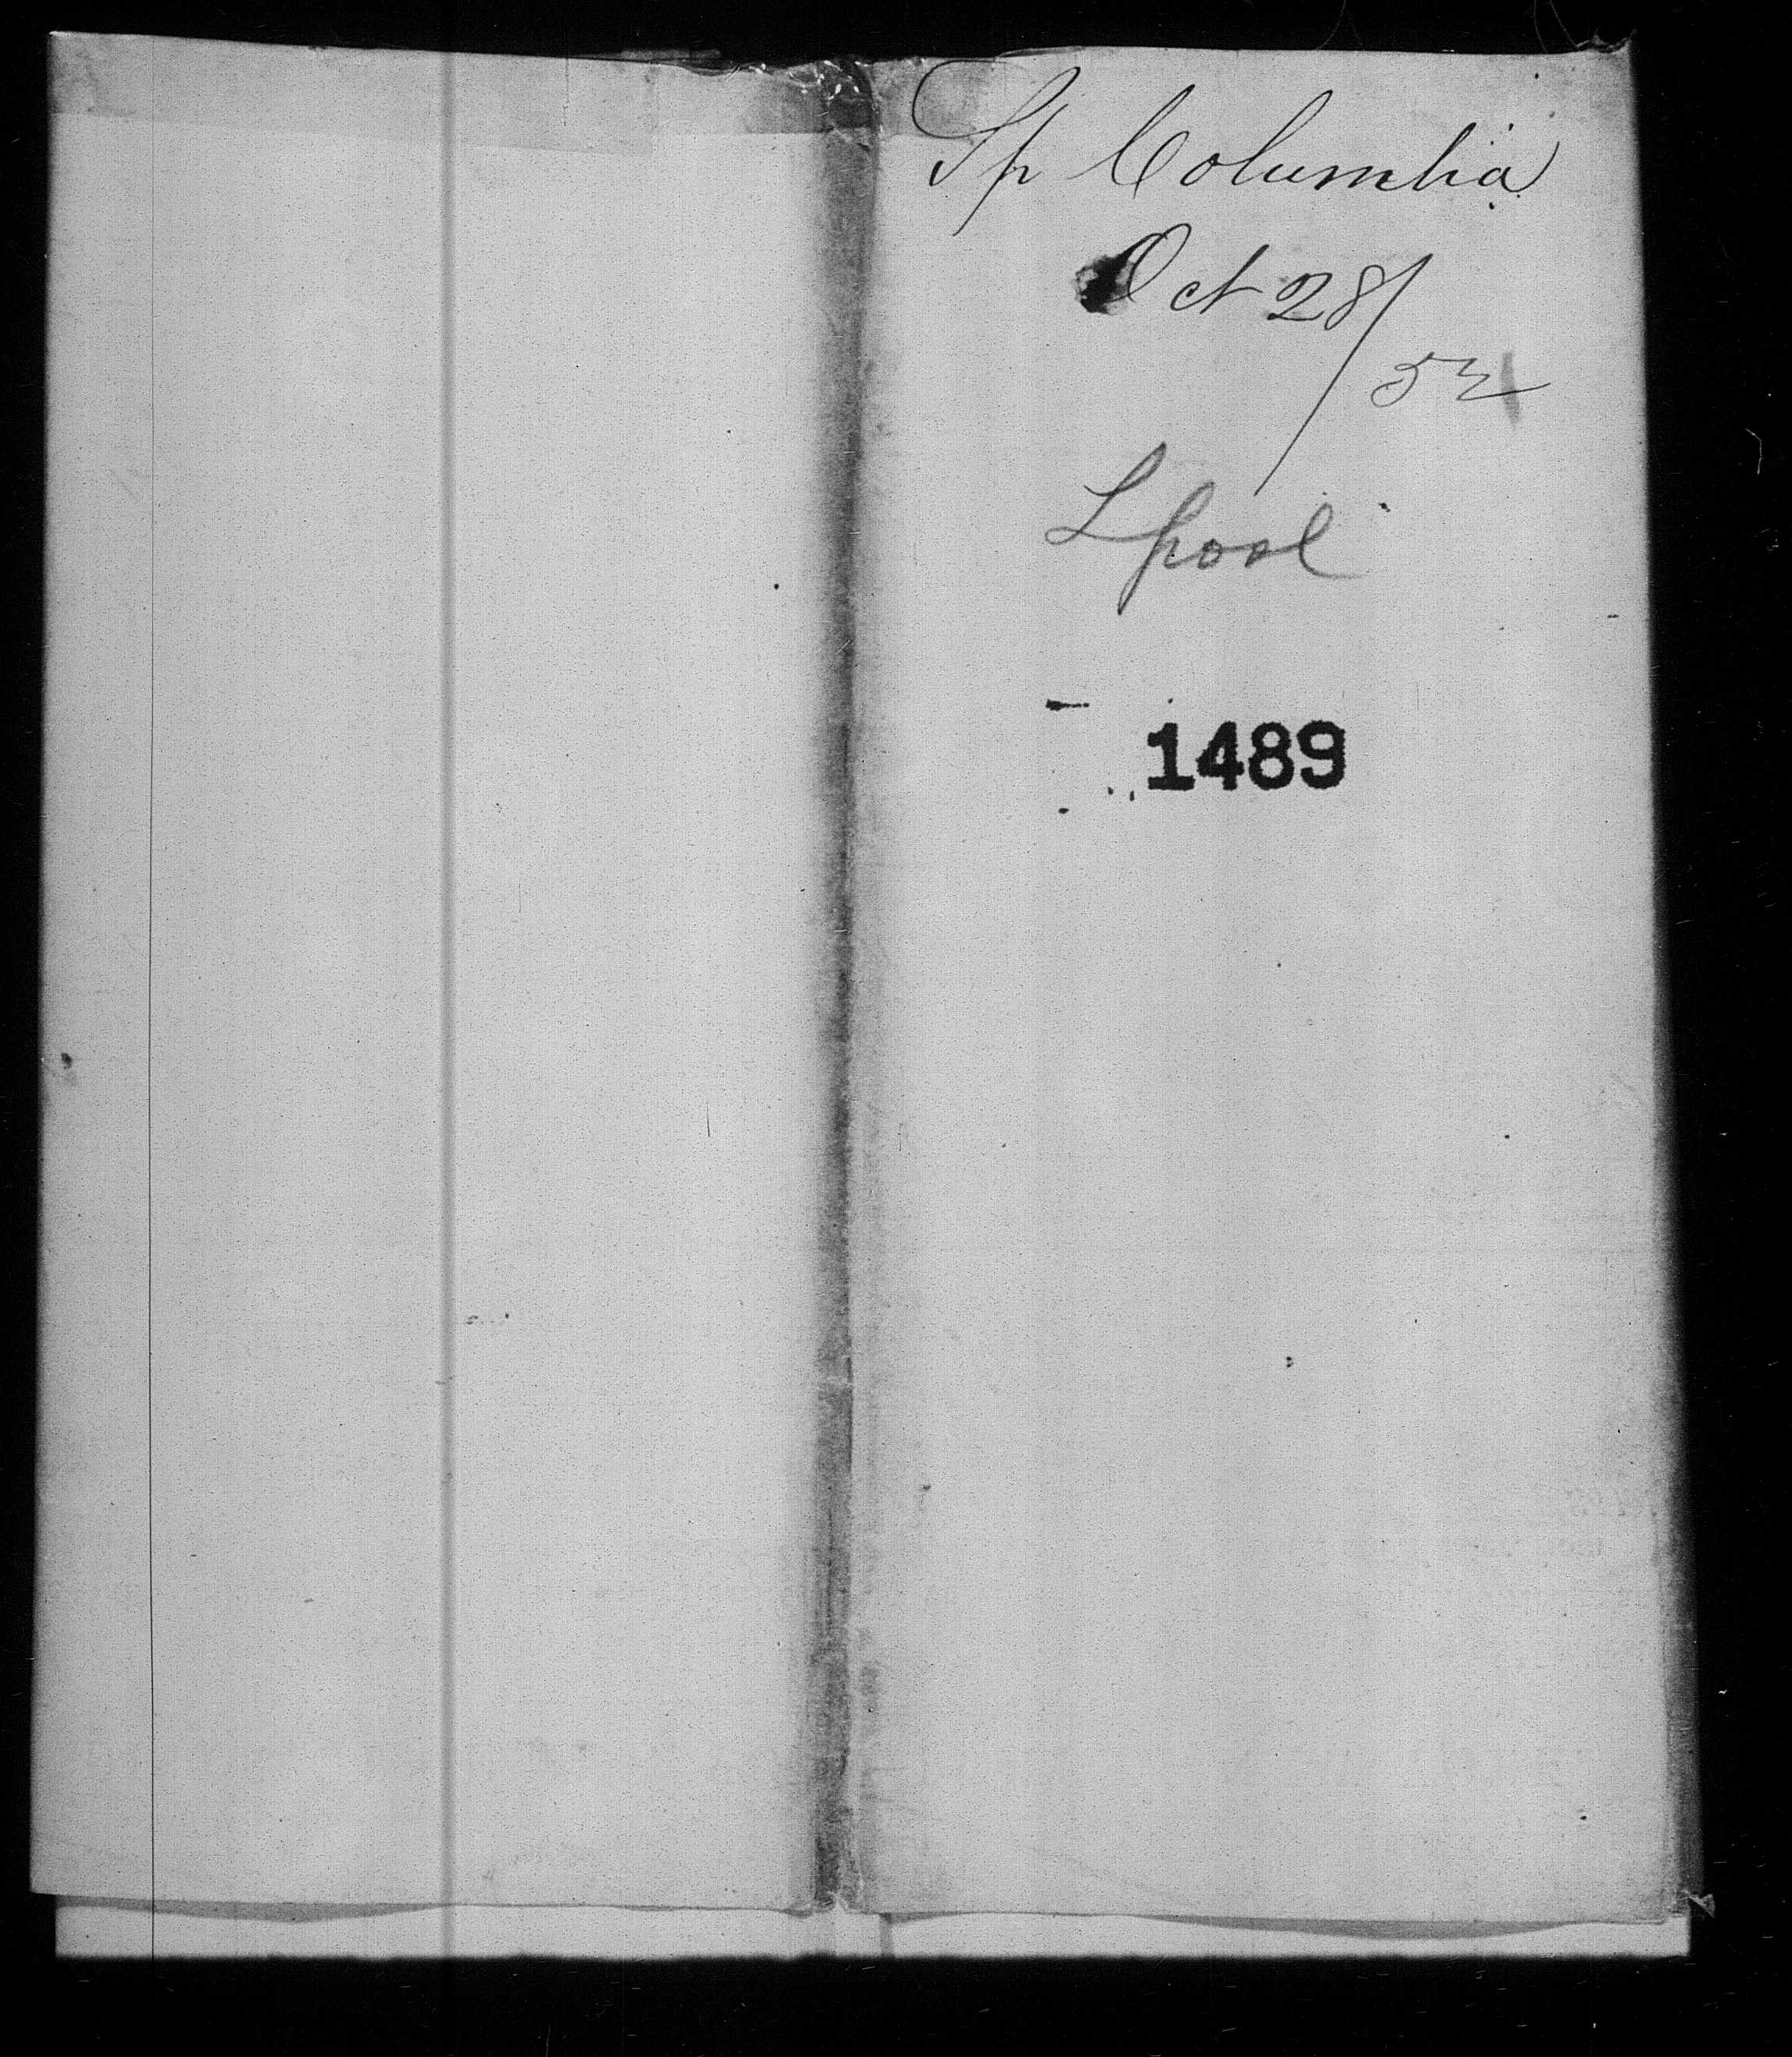 Sp Columbia
Oct 28/
52
Lpool
1489